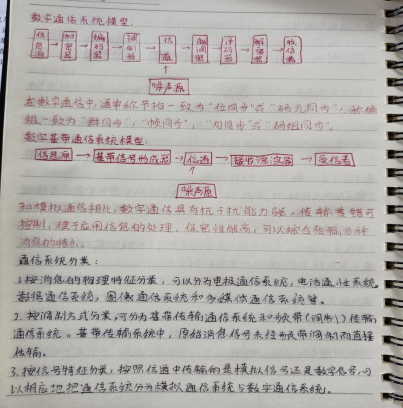 数字通信系统模型:
信息源 → 加密器 → 编码器 → 调制器 → 信道 → 解调器 → 译码器 → 解密器 → 收信者
噪声源
在数字通信中,通常称节拍一致为“位同步”或“码元同步”,称编
组一致为“群同步”,“帧同步”,“句同步”或“码组同步”。
数字基带通信系统模型:
信息源 → 基带信号形成器 → 信道 → 接收滤波器 → 受信者
噪声源
和模拟通信相比,数字通信具有抗干扰能力强,传输差错可
控制,便于应用信息的处理,保密性能高,可以综合传输各种
消息的特点。
通信系统分类:
1.按消息的物理特征分类,可以分为电报通信系统,电话通信系统,
数据通信系统,图像通信系统和多媒体通信系统等。
2.按调制方式分类,可分为基带传输通信系统和频带(调制)传输
通信系统。基带传输系统中,原始消息信号未经频带调制而直接
传输。
3.按信号特征分类,按照信道中传输的是模拟信号还是数字信号,可
以相应地把通信系统分为模拟通信系统与数字通信系统。